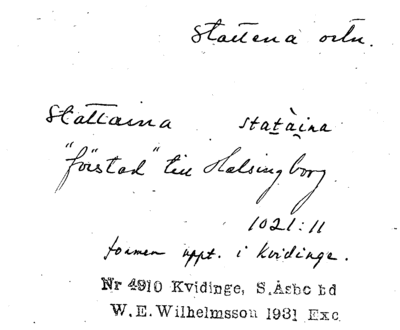 Stattena ortn.
Stattaina statàina
"förstad" till Halsingborg
1021:11
formen uppt. i Kvidinge.
Nr 4910 Kvidinge, S.Åsbo hd
W.E.Wilhelmsson 1931 Exc.